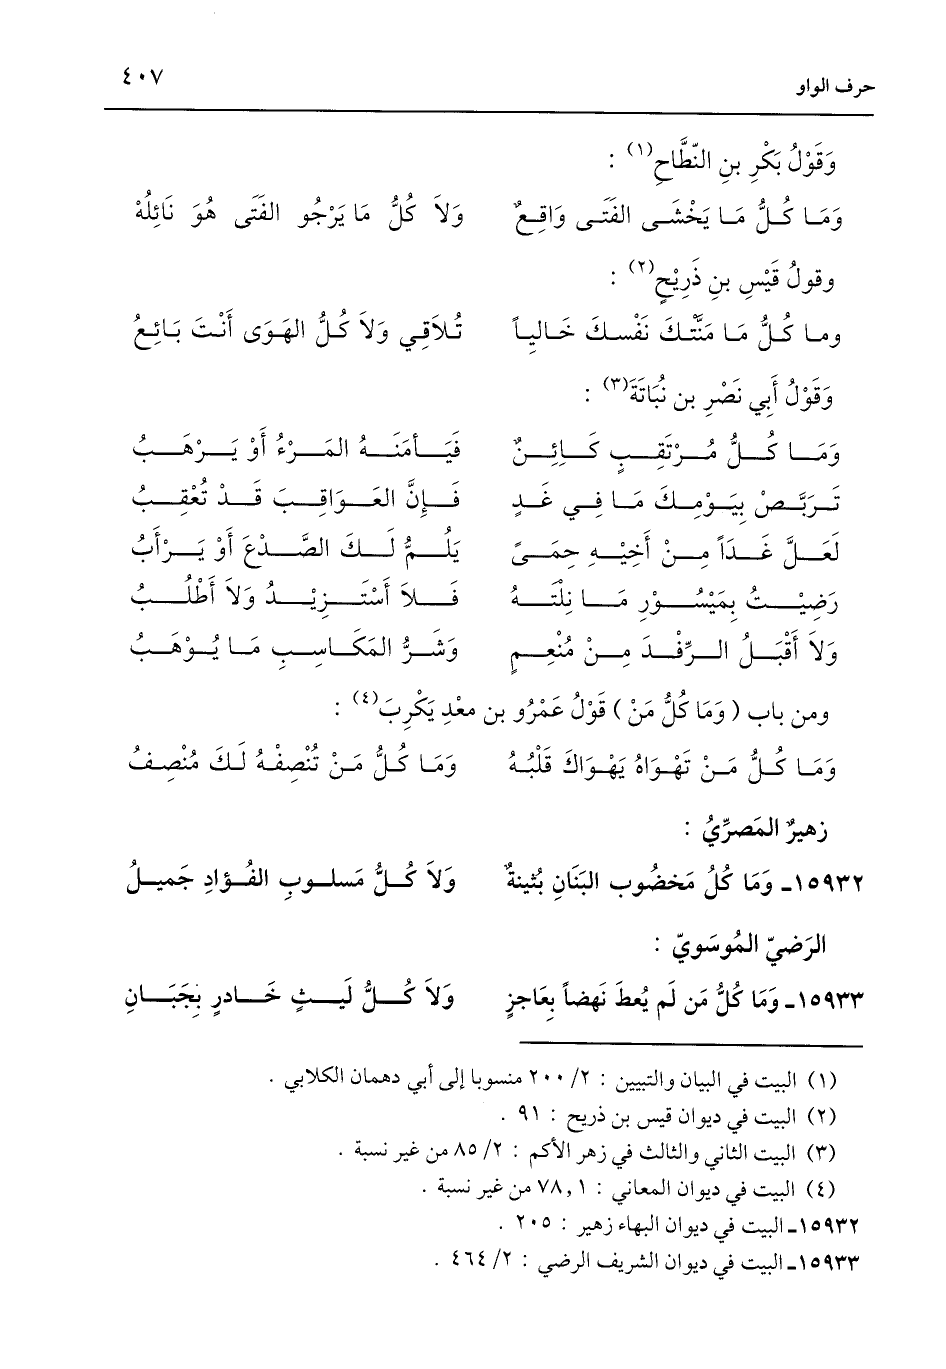 حرف الواو ٤٠٧
وَقَوْلُ بَكْرِ بنِ النَّطَّاحِ(١) :
وَمَا كُلُّ مَا يَخْشَى الفَتَى وَاقِعٌ وَلاَ كُلُّ مَا يَرْجُو الفَتَى هُوَ نَائِلُهْ
وقولُ قَيْسِ بنِ ذَرِيْحٍ(٢) :
وما كُلُّ مَا مَنَّتْكَ نَفْسكَ خَالياً تُلاَقِي وَلاَ كُلُّ الهَوَى أَنْتَ بَائِعُ
وَقَوْلُ أَبِي نَصْرِ بن نُبَاتَةَ(٣) :
وَمَا كُلُّ مُرْتَقِبٍ كَائِنٌ فَيَأمَنَهُ المَرْءُ أَوْ يَرْهَبُ
تَرَبَّصْ بِيَوْمِكَ مَا فِي غَدٍ فَإِنَّ العَوَاقِبَ قَدْ تُعْقِبُ
لَعَلَّ غَدَاً مِنْ أَخِيْهِ حِمَىً يَلُمُّ لَكَ الصَّدْعَ أَوْ يَرْأَبُ
رَضِيْتُ بِمَيْسُوْرِ مَا نِلْتَهُ فَلاَ أَسْتَزِيْدُ وَلاَ أَطْلُبُ
وَلاَ أَقْبَلُ الرِّفْدَ مِنْ مُنْعِمٍ وَشَرُّ المَكَاسِبِ مَا يُوْهَبُ
ومن باب ( وَمَا كُلُّ مَنْ ) قَوْلُ عَمْرُو بن معْدِ يَكْرِبَ(٤) :
وَمَا كُلُّ مَنْ تَهْوَاهُ يَهْوَاكَ قَلْبُهُ وَمَا كُلُّ مَنْ تُنْصِفْهُ لَكَ مُنْصِفُ
زهيرٌ المَصرِّيُ :
١٥٩٣٢ـ وَمَا كُلُ مَخضُوب البَنَانِ بُثينةٌ وَلاَ كُلُّ مَسلوبِ الفُؤادِ جَميلُ
الرَضيّ المُوسَويّ :
١٥٩٣٣ـ وَمَا كُلُّ مَن لَم يُعطَ نَهضاً بِعَاجزٍ وَلاَ كُلُّ لَيثٍ خَادرٍ بِجَبَانِ
(١) البيت في البيان والتبيين : ٢/ ٢٠٠ منسوبا إلى أبي دهمان الكلابي .
(٢) البيت في ديوان قيس بن ذريح : ٩١ .
(٣) البيت الثاني والثالث في زهر الأكم : ٢/ ٨٥ من غير نسبة .
(٤) البيت في ديوان المعاني : ٧٨,١ من غير نسبة .
١٥٩٣٢ـ البيت في ديوان البهاء زهير : ٢٠٥ .
١٥٩٣٣ـ البيت في ديوان الشريف الرضي : ٢/ ٤٦٤ .